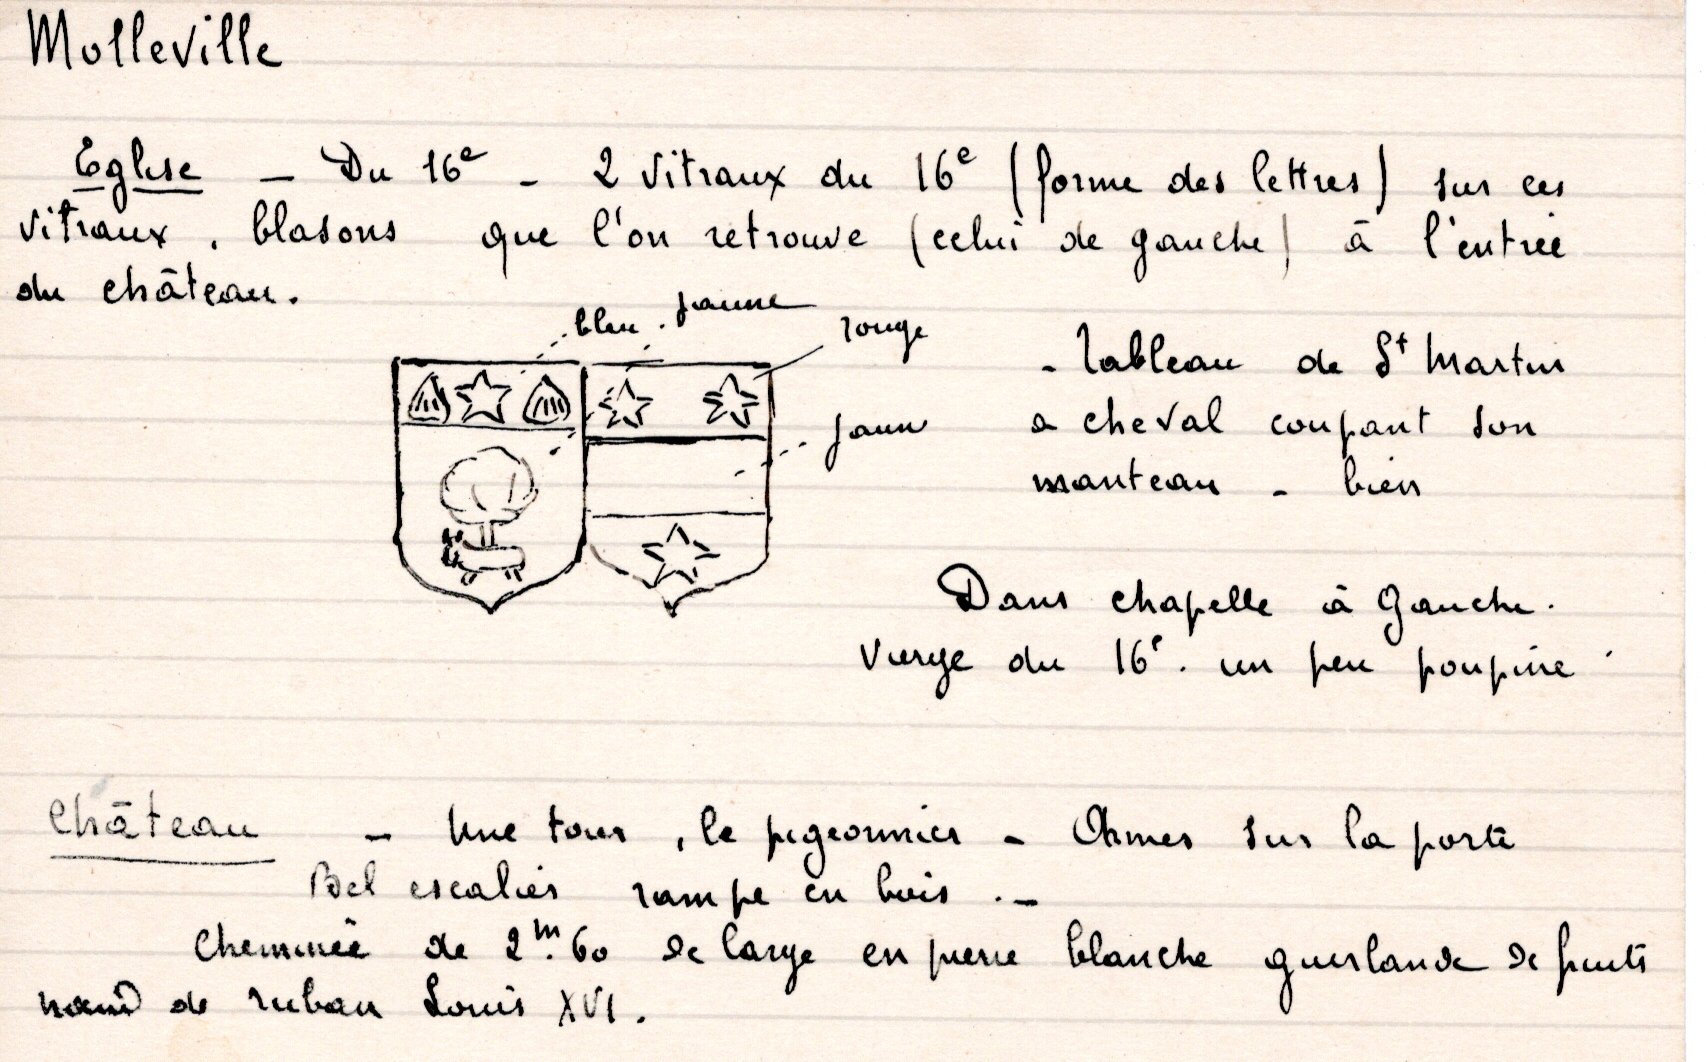 Molleville
Eglise – Du 16e – 2 vitraux du 16e (forme des lettres) sur ces
vitraux, blasons que l'on retrouve (celui de gauche) à l'entrée
du château.
bleu . jaune
rouge
jaune
– Tableau de St Martin
a cheval coupant son
manteau – bien
Dans chapelle à gauche.
Vierge du 16e. un peu poupine.
Château – Une tour, le pigeonnier – Armes sur la porte
Bel escalier rampe en bois . –
Cheminée de 2m.60 de large en pierre blanche guirlande de fruits
nœud de ruban Louis XVI.